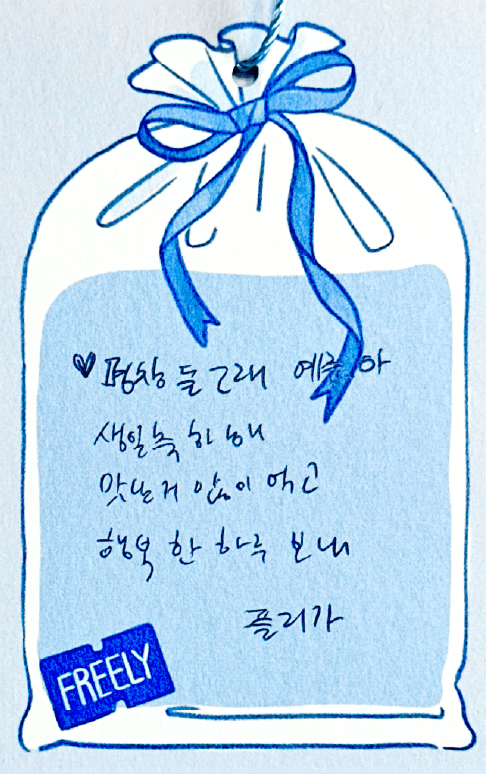 ♥ 평창 돌고래 예 아
생일 축하해
맛난거 많이 먹고
행복한 하루 보내
플리가
FREELY